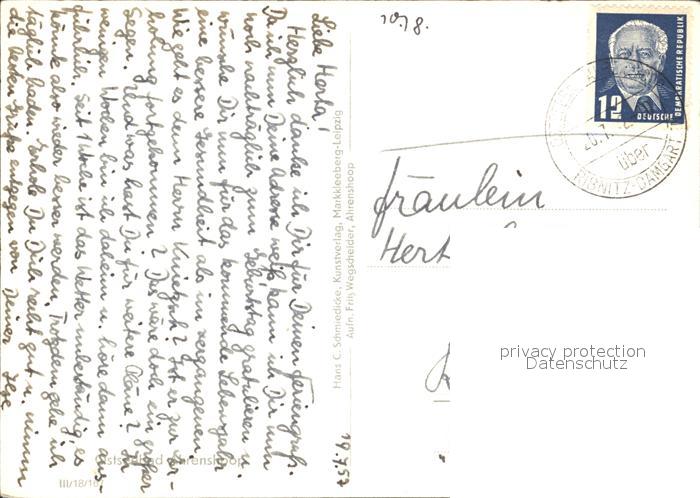 Liebe Herta!
Herzlich danke ich Dir für Deinen Feriengruß.
Da ich nun Deine Adresse weiß, kann ich Dir auch
noch nachträglich zum Geburtstag gratulieren u.
wünsche Dir nun für das kommende Lebensjahr
eine bessere Gesundheit als im vergangenen.
Wie geht es denn Herrn Knietzsch? Ist er zur Er-
holung fortgekommen? Das wäre doch ein großer
Segen. Und was hast Du für weitere Pläne? In
wenigen Wochen bin ich daheim u. höre dann aus-
führlich. Seit 1 Woche ist das Wetter unbeständig, es
könnte also wieder besser werden. Trotzdem gehe ich
täglich baden. Erhole Du Dich recht gut u. nimm
die besten Grüße entgegen von Deiner
19.7.57
Ostseebad Ahrenshoop
III/18/16
Hans C. Schmiedicke, Kunstverlag, Markkleeberg-Leipzig
Aufn. Fritz Wegscheider, Ahrenshoop
10/8.
12
DEUTSCHE
DEMOKRATISCHE REPUBLIK
über
RIBNITZ-DAMGARTEN
Fräulein
Hert
privacy protection
Datenschutz